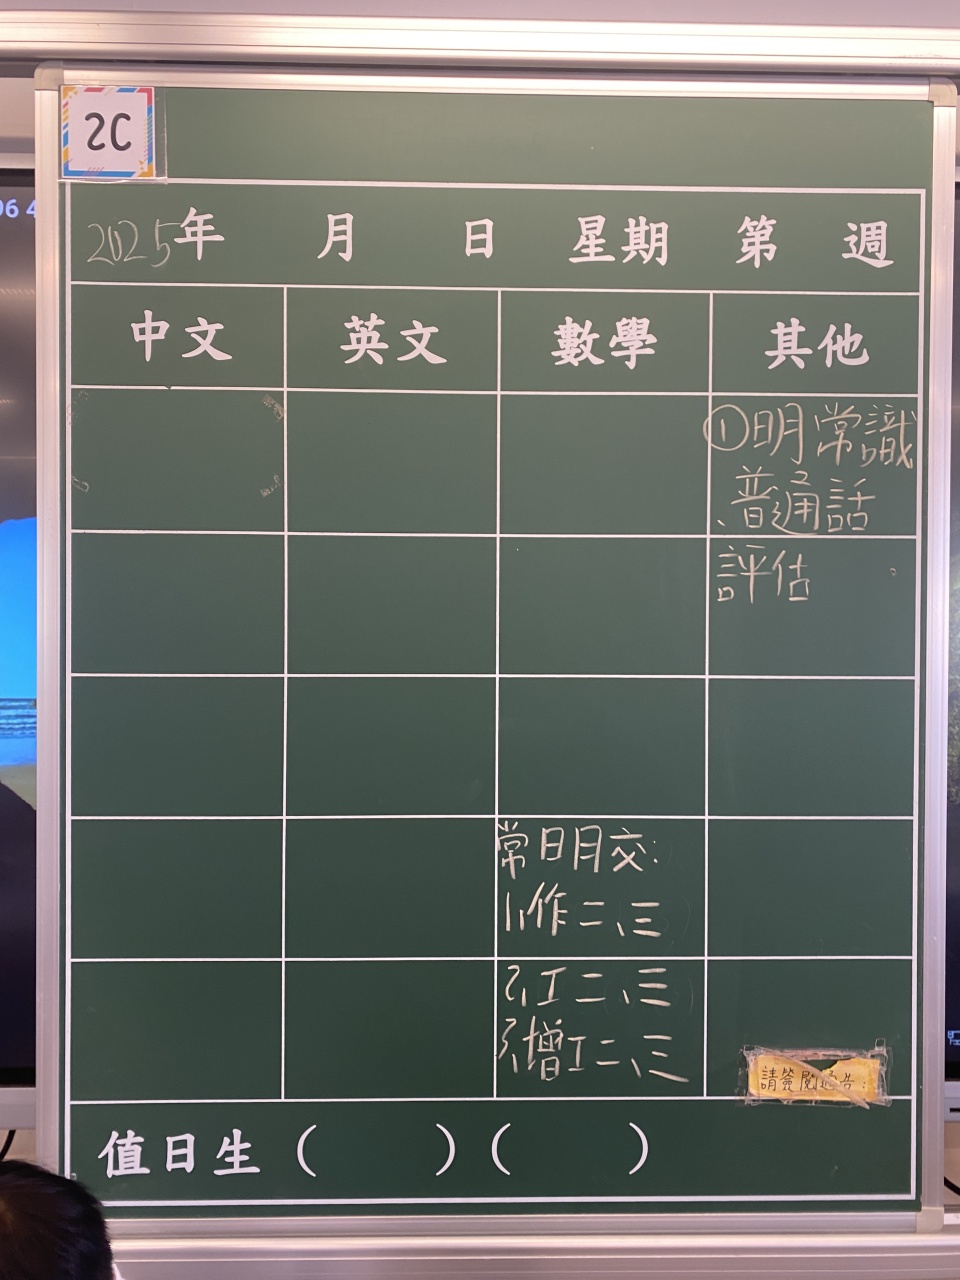 2C
2025年 月 日 星期 第 週
中文 英文 數學 其他
①明常識
、普通話
評估。
常明交:
1,作二、三
2,工二、三
3,增工二、三
請簽閱通告:
值日生( )( )